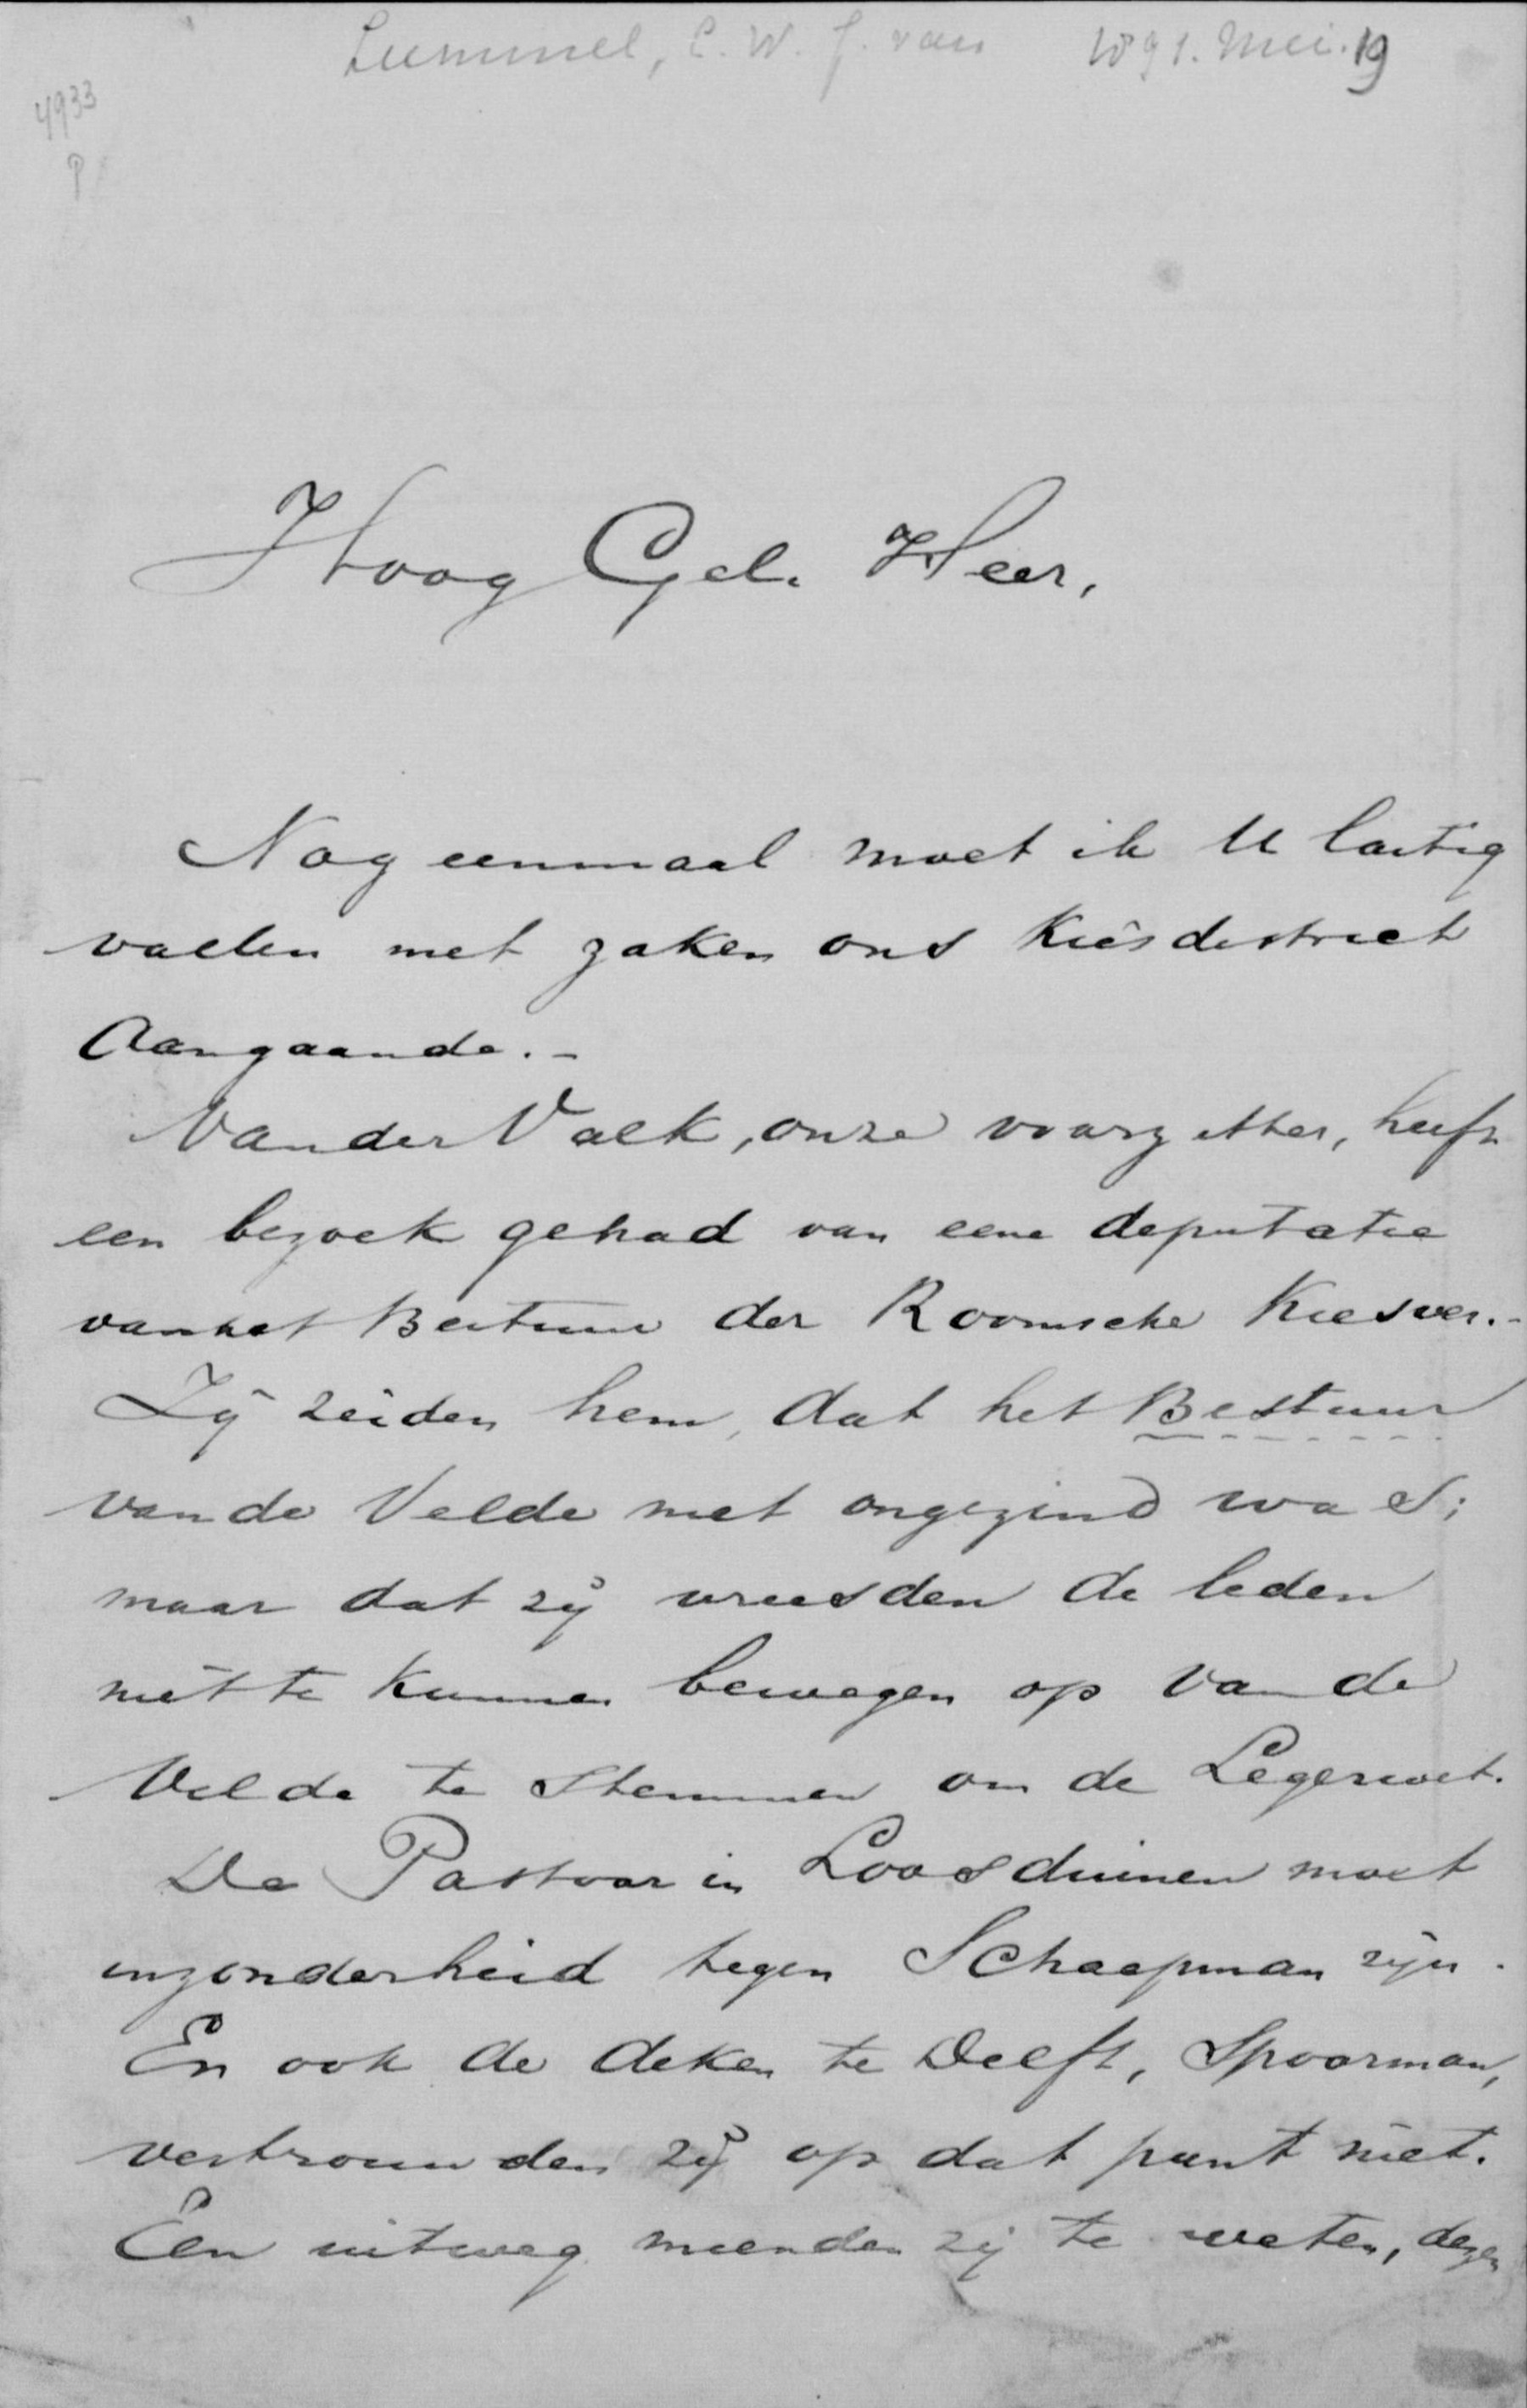 Lummel, C. W. J. van 1891. Mei. 19
4933
P
Hoog Gel. Heer,
Nog eenmaal moet ik U lastig
vallen met zaken ons Kiesdistrict
Aangaande. -
Van der Valk, onze voorzitter, heeft
een bezoek gehad van eene deputatie
van het Bestuur der Roomsche Kiesver. -
Zij zeiden hem, dat het Bestuur
van de Velde niet ongezind was;
maar dat zij vreesden de leden
niet te kunnen bewegen op van de
Velde te stemmen om de Legerwet.
De Pastoor in Loosduinen moet
inzonderheid tegen Schaepman zijn.
En ook de deken te Delft, Spoorman,
vertrouwden zij op dat punt niet.
Een uitweg meenden zij te weten, dezen